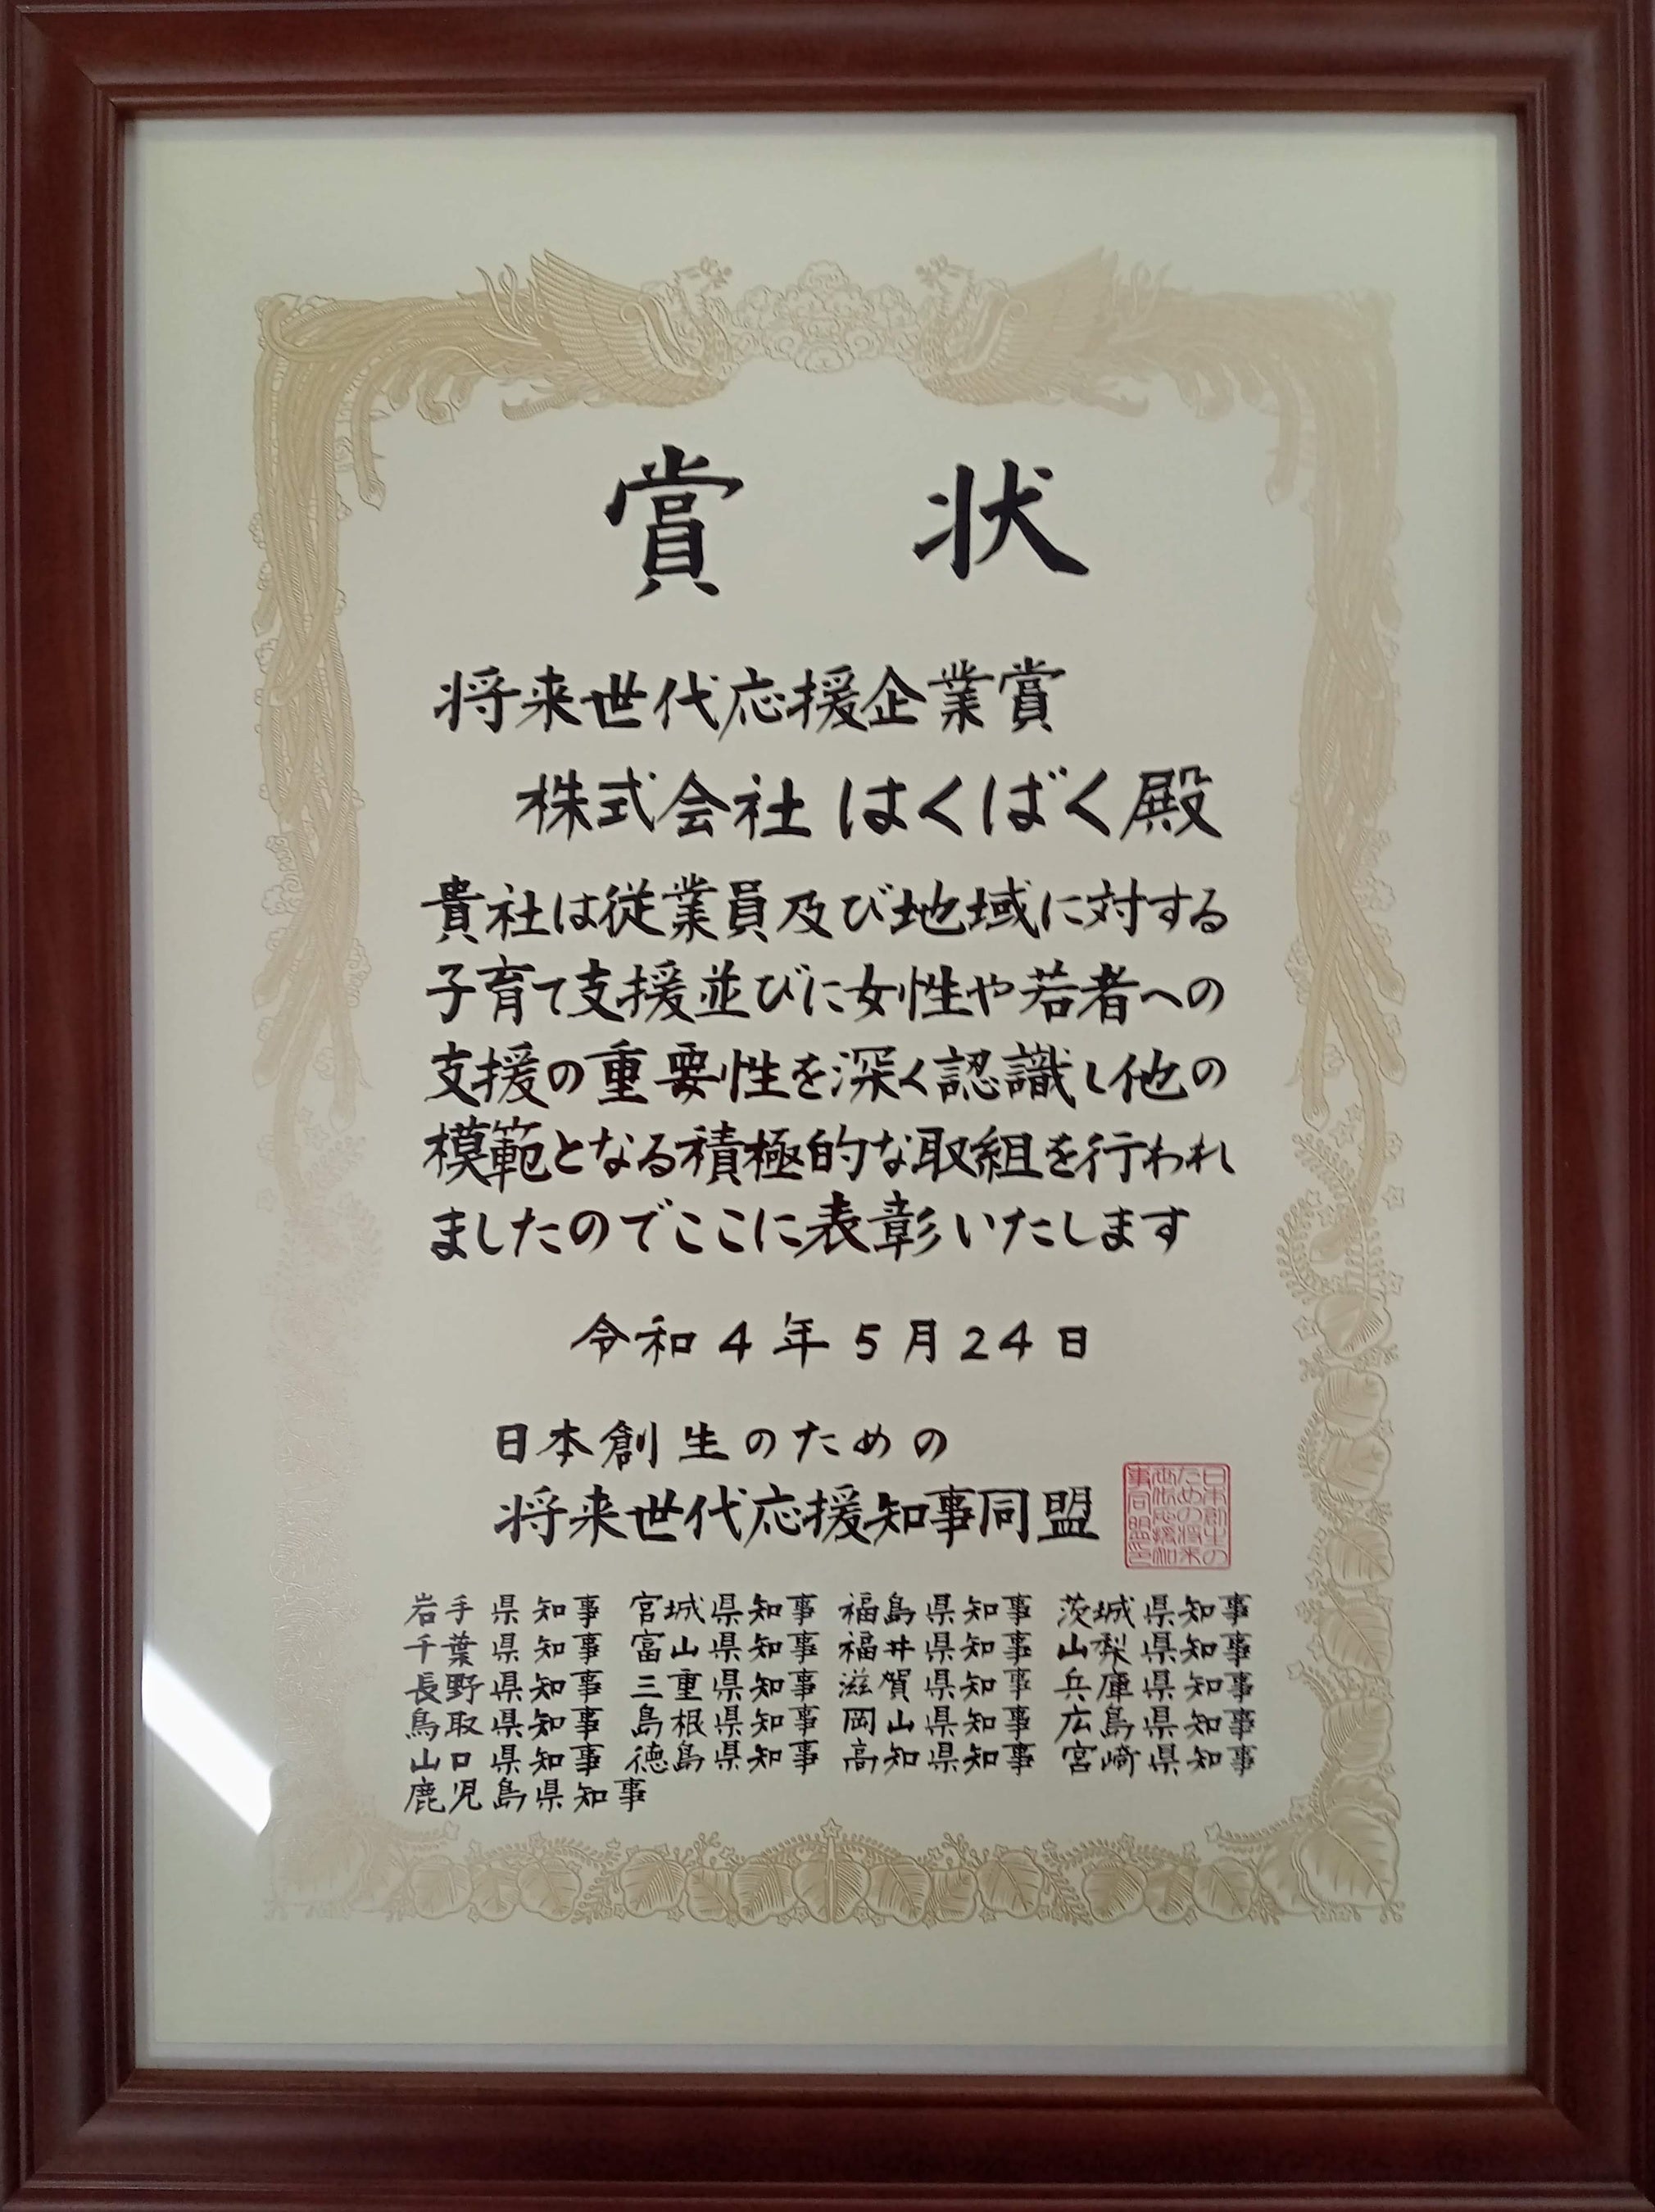 賞状
将来世代応援企業賞
株式会社はくばく殿
貴社は従業員及び地域に対する
子育て支援並びに女性や若者への
支援の重要性を深く認識し他の
模範となる積極的な取組を行われ
ましたのでここに表彰いたします
令和4年5月24日
日本創生のための
将来世代応援知事同盟
日本創生の
ための将来
世代応援知
事同盟印
岩手県知事 宮城県知事 福島県知事 茨城県知事
千葉県知事 富山県知事 福井県知事 山梨県知事
長野県知事 三重県知事 滋賀県知事 兵庫県知事
鳥取県知事 島根県知事 岡山県知事 広島県知事
山口県知事 徳島県知事 高知県知事 宮崎県知事
鹿児島県知事